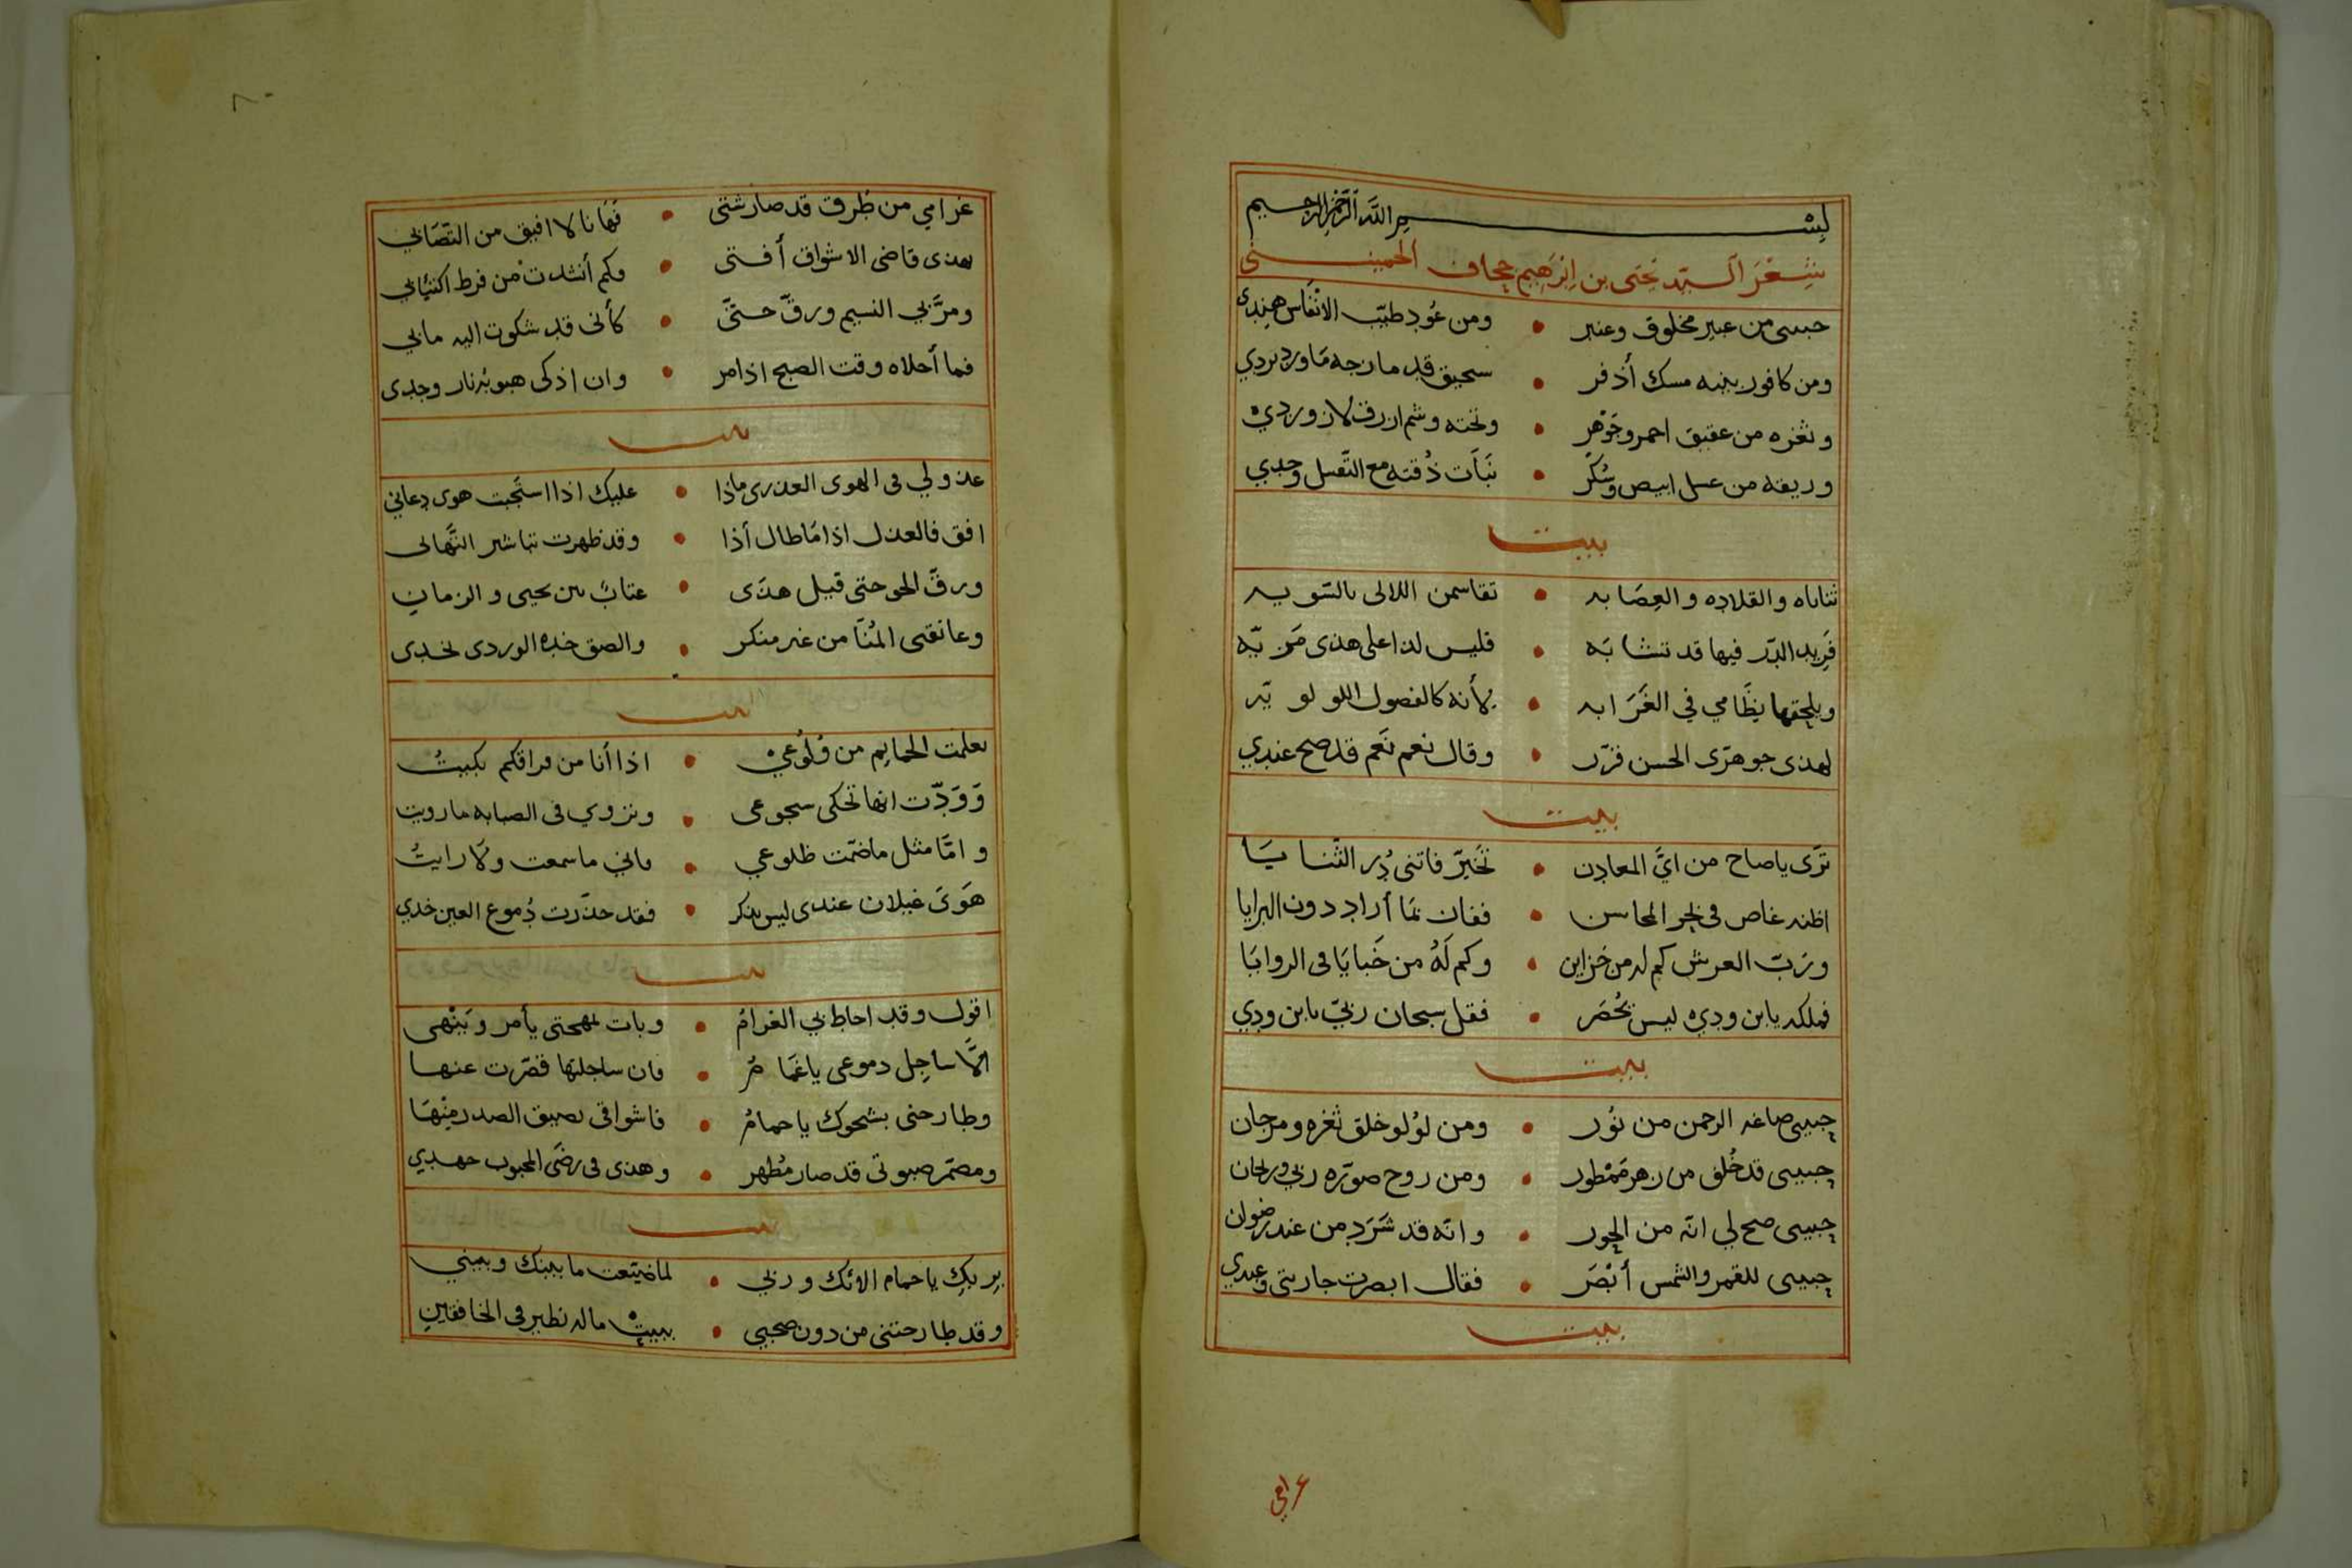 بسم الله الرحمن الرحيم
شعر السيد يحيى بن ابرهيم جحاف الحميني
حبيبي من عبير مخلوق وعنبر • ومن عُود طيّب الانفاس هندي
ومن كافور بينه مسك أذفر • سحيق قد مازجه ماورد بردي
وثغره من عقيق احمر وجَوْهر • وتحته وشم ازرق لازوردي
وريقه من عسل ابيض وسُكّر • نَبَات ذُقته مع التقبيل وحدي
بيت
ثناياه والقلاده والعِصَابه • تقاسمن اللالى بالسّويه
فَرِيد الدّر فيها قد تشابَه • فليس لذا على هذى مَزِيّه
ويلحقها نِظَامي في الغَرَابه • لأنه كالفصول اللولويّه
لهذى جوهرَى الحسن قرّر • وقال نعم نَعَم قد صح عندي
بيت
ترَى ياصاح من ايّ المعادن • تَخَيّر فاتنى دُر الثنايَا
اظنه غاص فى بحر المحاسن • ففان بما أراد دون البرايا
وربّ العرش كم له من خزاين • وكم لَهُ من خَبايَا فى الروايَا
فملكه يابن ودي ليس يُحْصَر • فقل سبحان ربّي يابن ودي
بيت
حبيبى صاغه الرحمن من نُور • ومن لؤلو خلق ثغره ومرجان
حبيبى قد خُلق من زهر مَمْطور • ومن روح صوّره ربي وريحان
حبيبى صح لي انّه من الحور • وانّه قد شَرَد من عند رضوان
حبيبى للقمر والشمس أبْصَر • فقال ابصرت جاريتى وعبدي
بيت
غرامي
غرامي من طُرق قد صار شتى • فَهَا نا لا افيق من التّصَابي
بهذى قاضى الاشواق أفتى • وكم أنشدت من فرط اكتئابي
ومرَّ بي النسيم ورقّ حتّى • كأنى قد شكوت اليه مابي
فما أحلاه وقت الصبح اذا مر • وان اذكى هبوبُه نار وجدى
بيت
عذولي فى الهوى العذرى ماذا • عليك اذا استَجبت هوى دعاني
افق فالعذل اذا مَا طال أذا • وقد ظهرت تباشر التّهانى
ورقّ الجو حتى قيل هذَى • عتابٌ بين يحيى والزمان
وعانقنى المُنَا من غير منكر • والصق خده الوردى بخدى
بيت
تعلمت الحمايم من وُلُوعيْ • اذا أنا من فراقكم بكيتُ
وَوَدّت انها تحكى سجوعى • وتروي فى الصبابه ما رويت
وامّا مثل ما ضمّت ظلوعي • فاني ما سمعت ولَا رايتُ
هَوَىَ غيلان عندى ليس يذكر • فقد خدّرت دُموع العين خدي
بيت
اقول وقد احاط بي الغرامُ • وبات بمهجتى يأمر وَيَنْهى
ألا ساجِل دموعى ياغَمَامُ • فان ساجلتها قصّرت عنها
وطارحنى بشجوك يا حمامُ • فاشواقى تضيق الصدر مِنْهَا
ومضمَر صبوتى قد صار مُظهر • وهذى فى رضَى المحبوب جهدي
بيت
بِربكِ يا حمام الائك وربي • لما ضيّعت ما بينك وبيني
وقد طارحتنى من دون صحبي • ببيتْ ماله نظير فى الخافقين